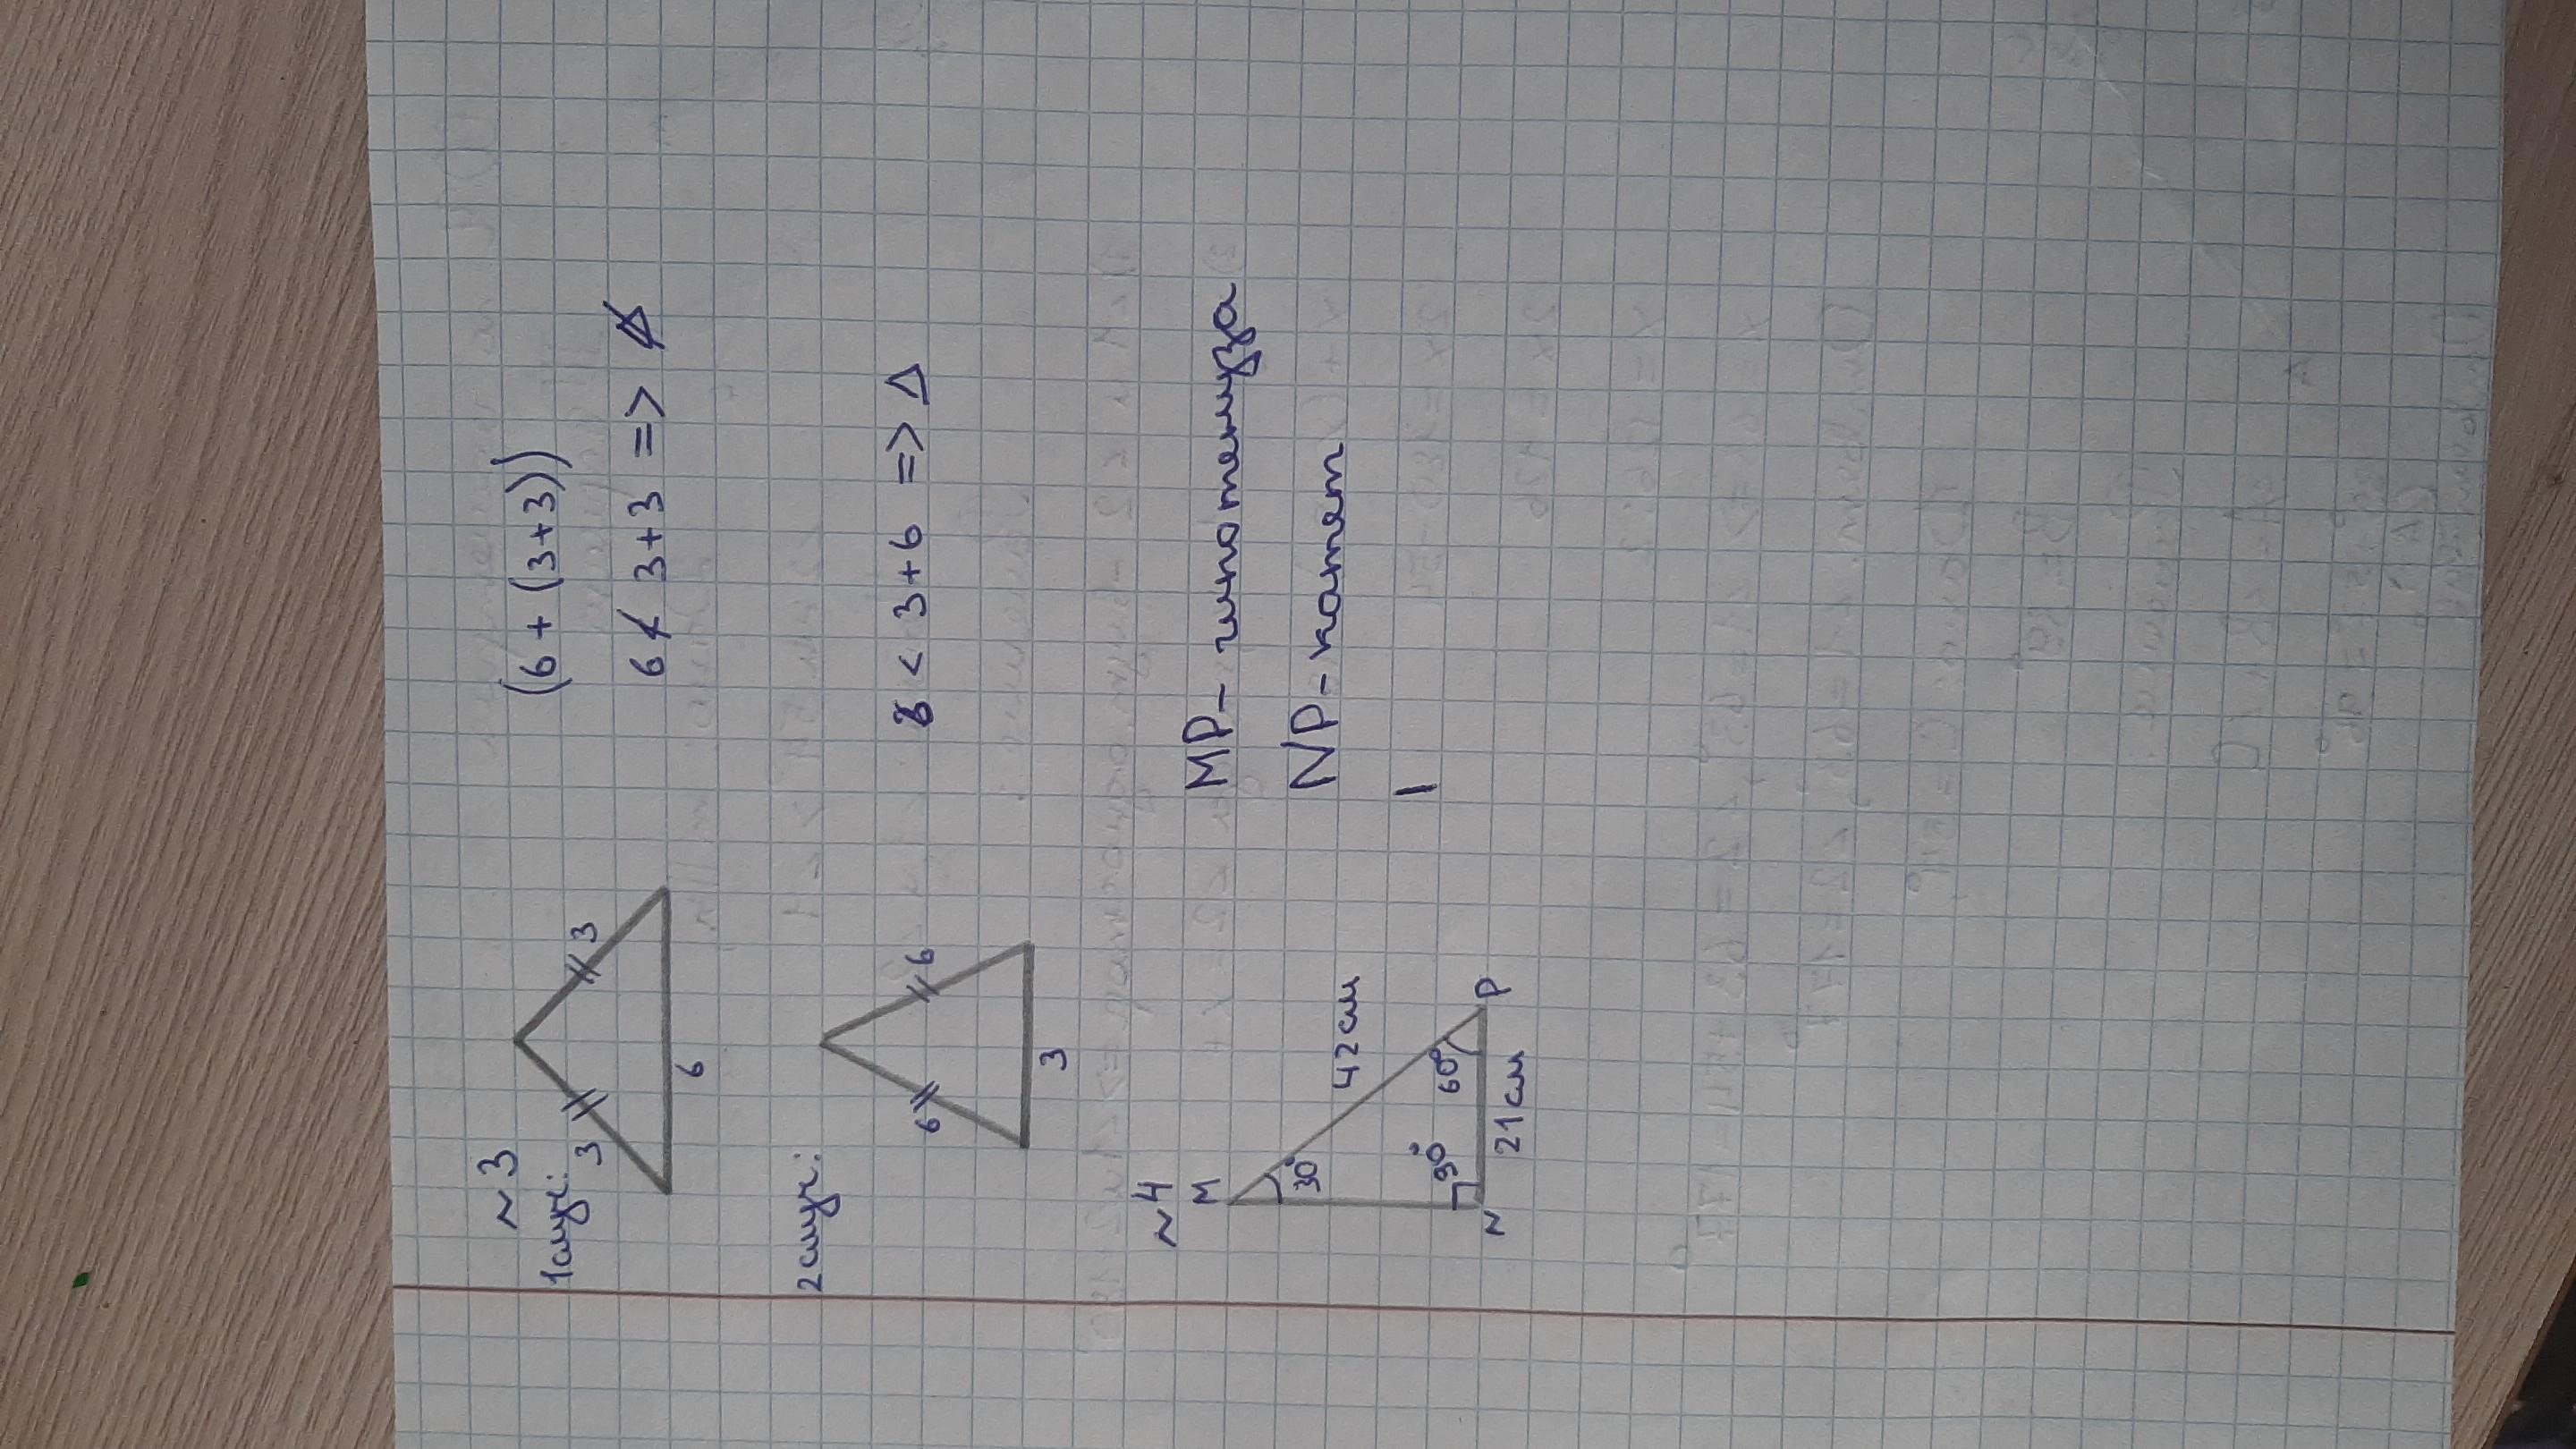 ~3
1случ:
3 3
6
(6 + (3+3))
6 ≮ 3+3 => 
2случ:
6 6
3
6 < 3+6 => Δ
~4
M
30°
42см
90°
60°
N
P
21см
MP - гипотенуза
NP - катет